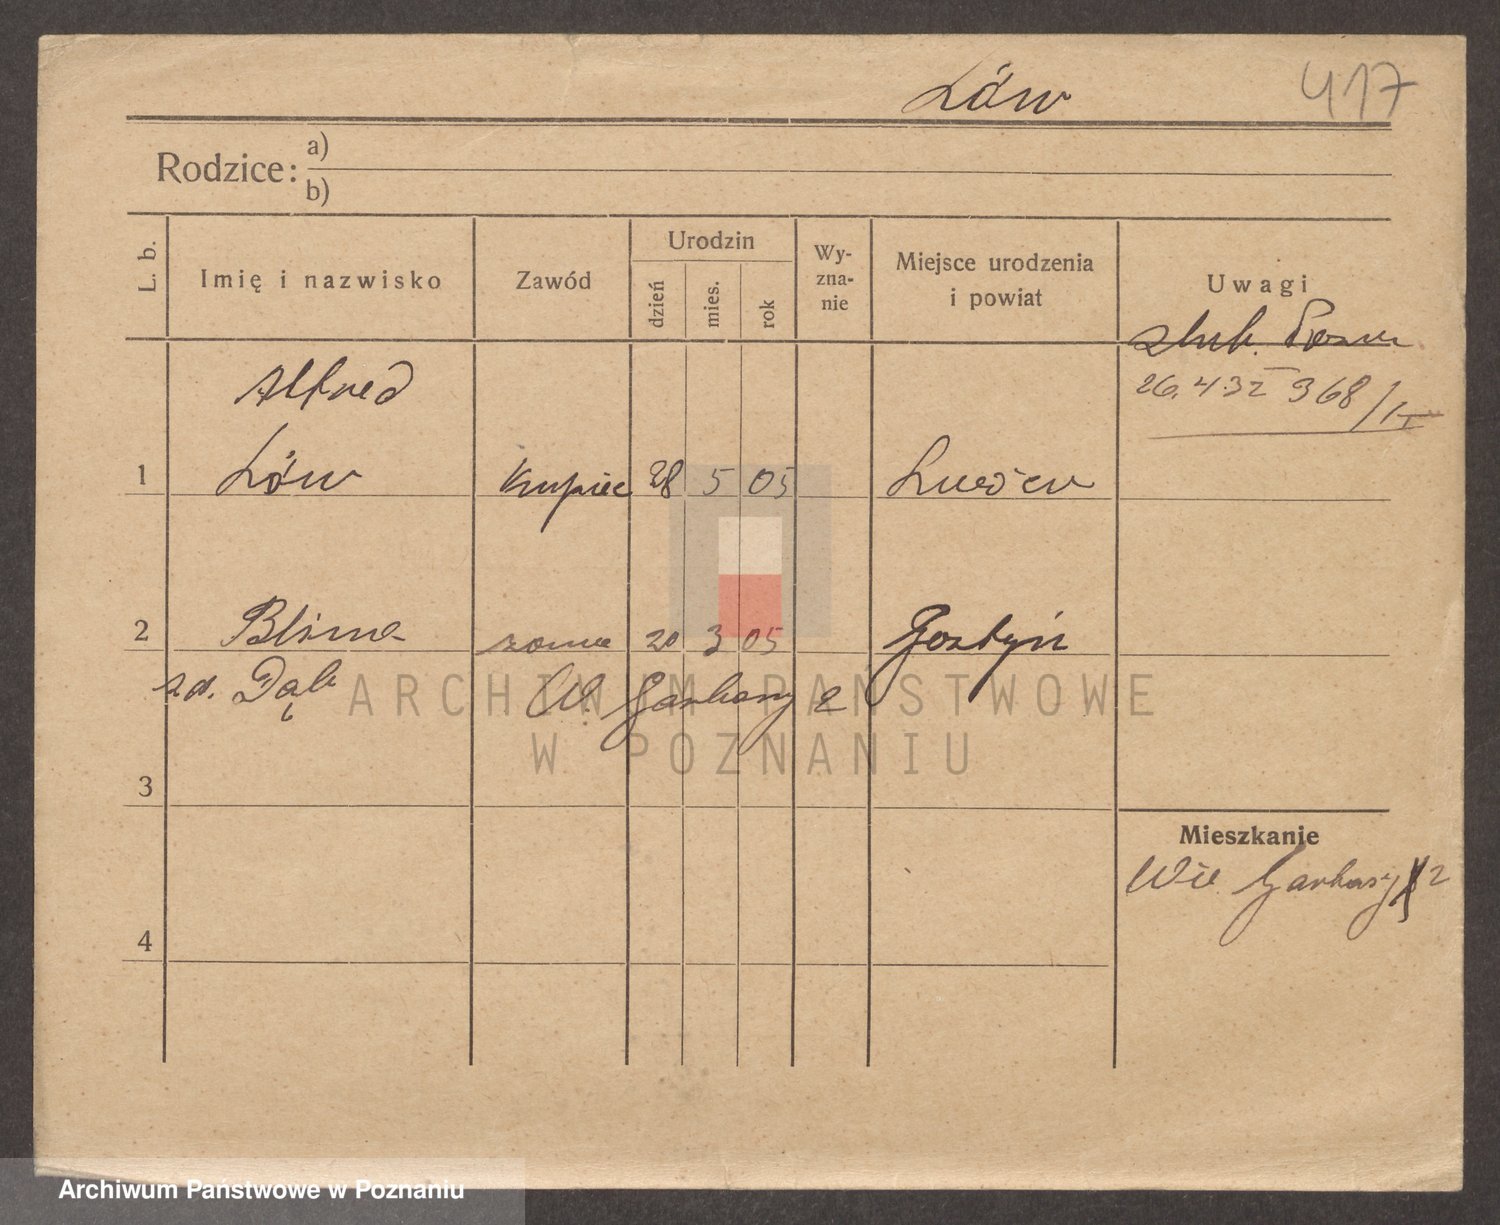 Löw 417
Rodzice: a)
b)
L. b. Imię i nazwisko Zawód Urodzin dzień mies. rok Wy-zna-nie Miejsce urodzenia i powiat Uwagi
ślub. Pozn
26.4.32 368/II
Alfred
1 Löw kupiec 28 5 05
2 Blima żona 20 3 05 Gostyń
zd. Dąb W. Garbary 2
3
Mieszkanie
Wie. Garbary 2
4
ARCHIWUM PAŃSTWOWE
W POZNANIU
Archiwum Państwowe w Poznaniu